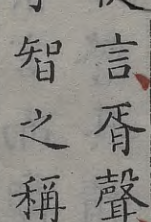 言胥聲
智之稱